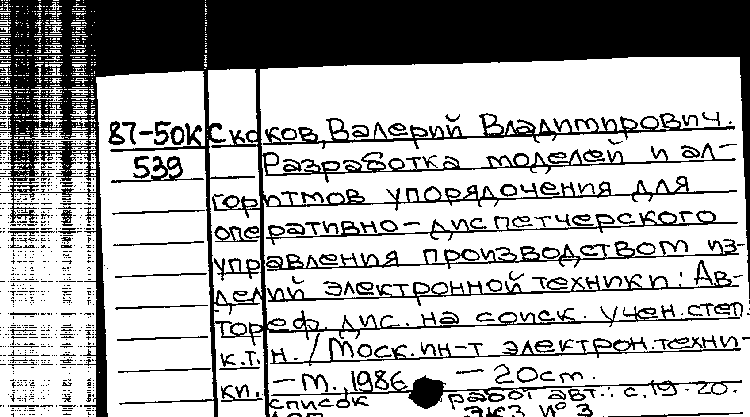 87-50К Скоков, Валерий Владимирович.
539 Разработка моделей и ал-
горитмов упорядочения для
оперативно-диспетчерского
управления производством из-
делий электронной техники: Ав-
тореф. дис. на соиск. учен. степ.
к.т.н. / Моск. ин-т электрон. техни-
ки. - М., 1986 - 20 ст.
список работ авт.: с. 19-20.
ЭКЗ № 3